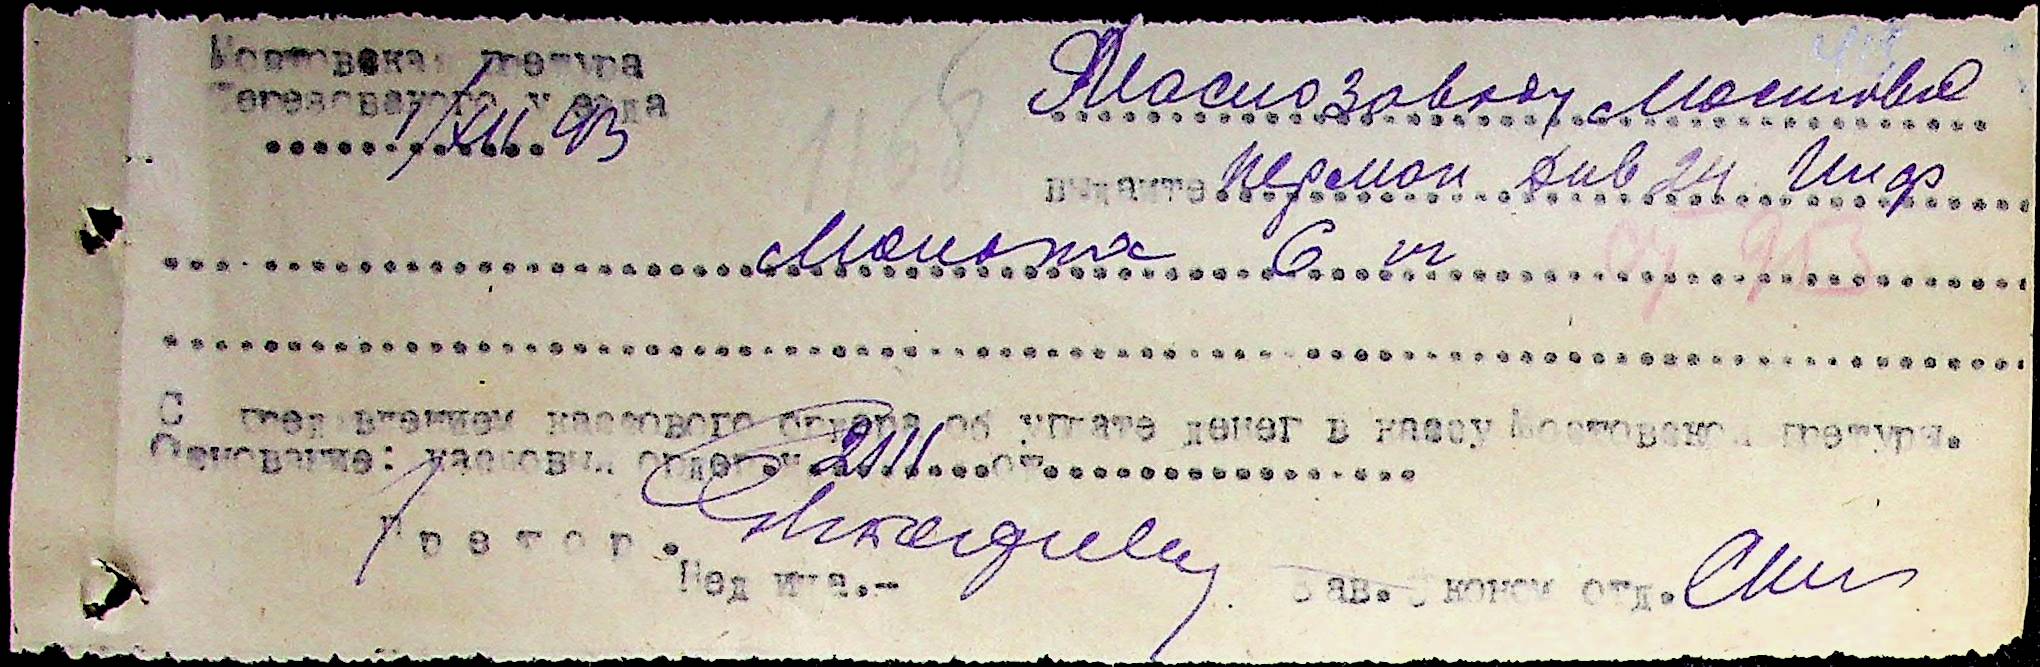 Мостовская претура
Березовского уезда
1/XII 43
Маслозаводу Мостовое
выдайте Герман див 24 Инф
Молока 6 л
С пред'влением кассового ордера об уплате денег в кассу Мостовской претуры.
Основание: кассовый ордер № 2111 от
Претор.
Зав. Эконом отд.